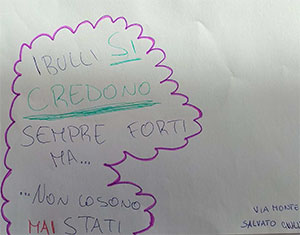 I BULLI SI
CREDONO
SEMPRE FORTI
MA...
...NON LO SONO
MAI STATI
VIA MONTE
SALVATO